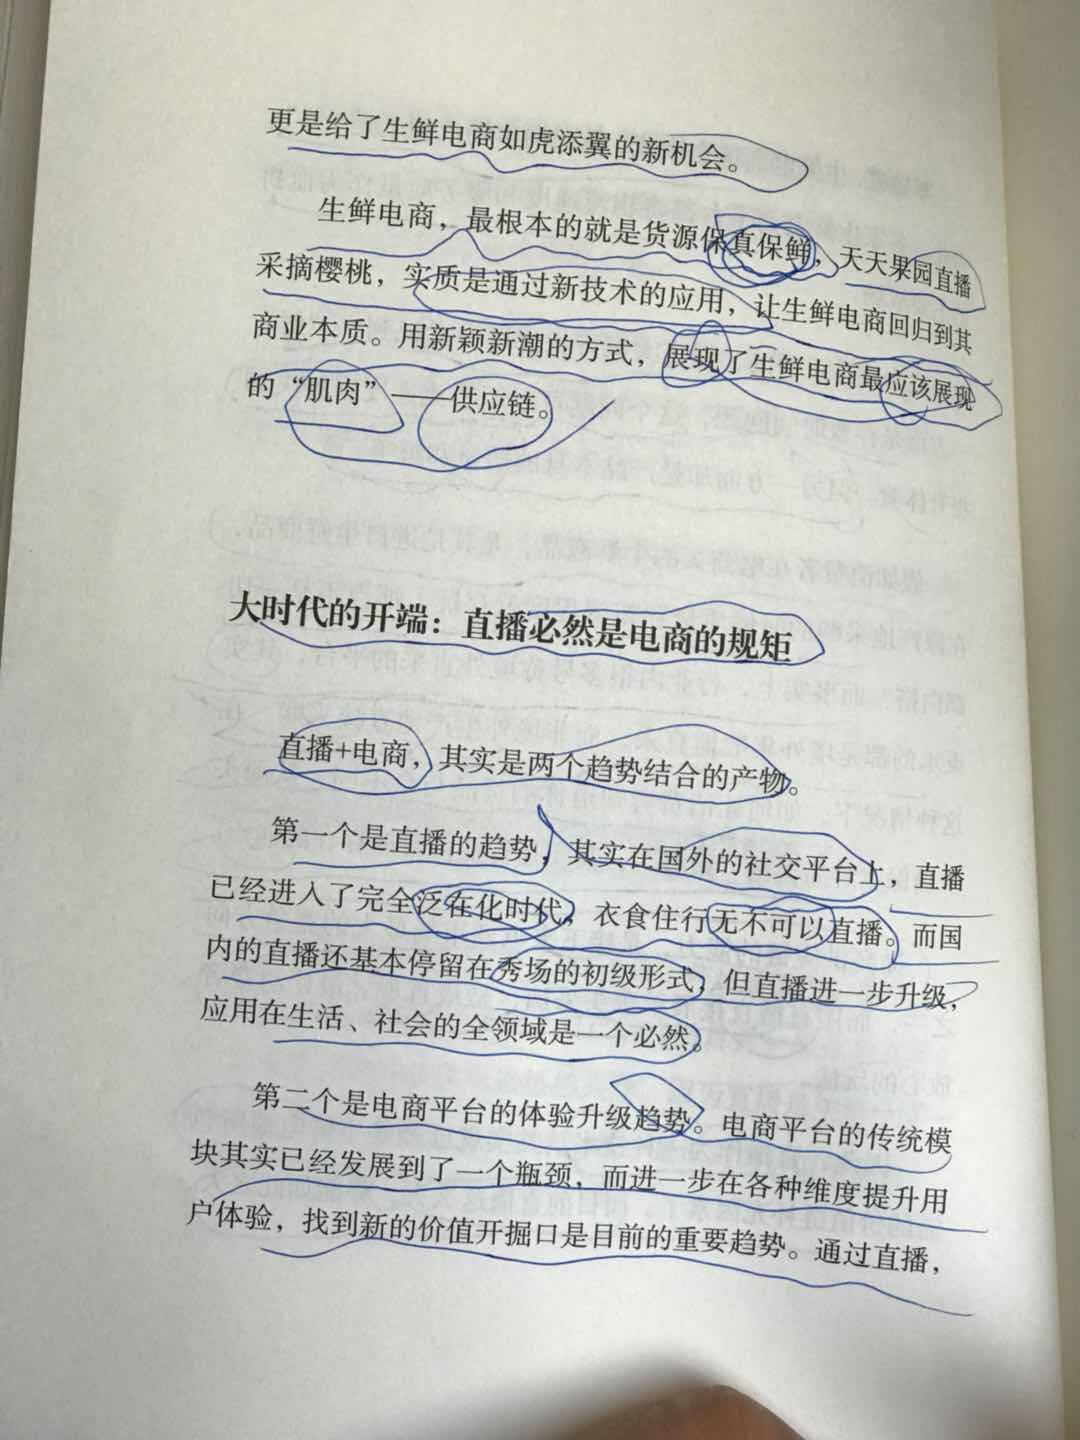 更是给了生鲜电商如虎添翼的新机会。
生鲜电商，最根本的就是货源保真保鲜，天天果园直播
采摘樱桃，实质是通过新技术的应用，让生鲜电商回归到其
商业本质。用新颖新潮的方式，展现了生鲜电商最应该展现
的“肌肉”——供应链。
大时代的开端：直播必然是电商的规矩
直播+电商，其实是两个趋势结合的产物。
第一个是直播的趋势，其实在国外的社交平台上，直播
已经进入了完全泛在化时代，衣食住行无不可以直播。而国
内的直播还基本停留在秀场的初级形式，但直播进一步升级，
应用在生活、社会的全领域是一个必然。
第二个是电商平台的体验升级趋势。电商平台的传统模
块其实已经发展到了一个瓶颈，而进一步在各种维度提升用
户体验，找到新的价值开掘口是目前的重要趋势。通过直播，